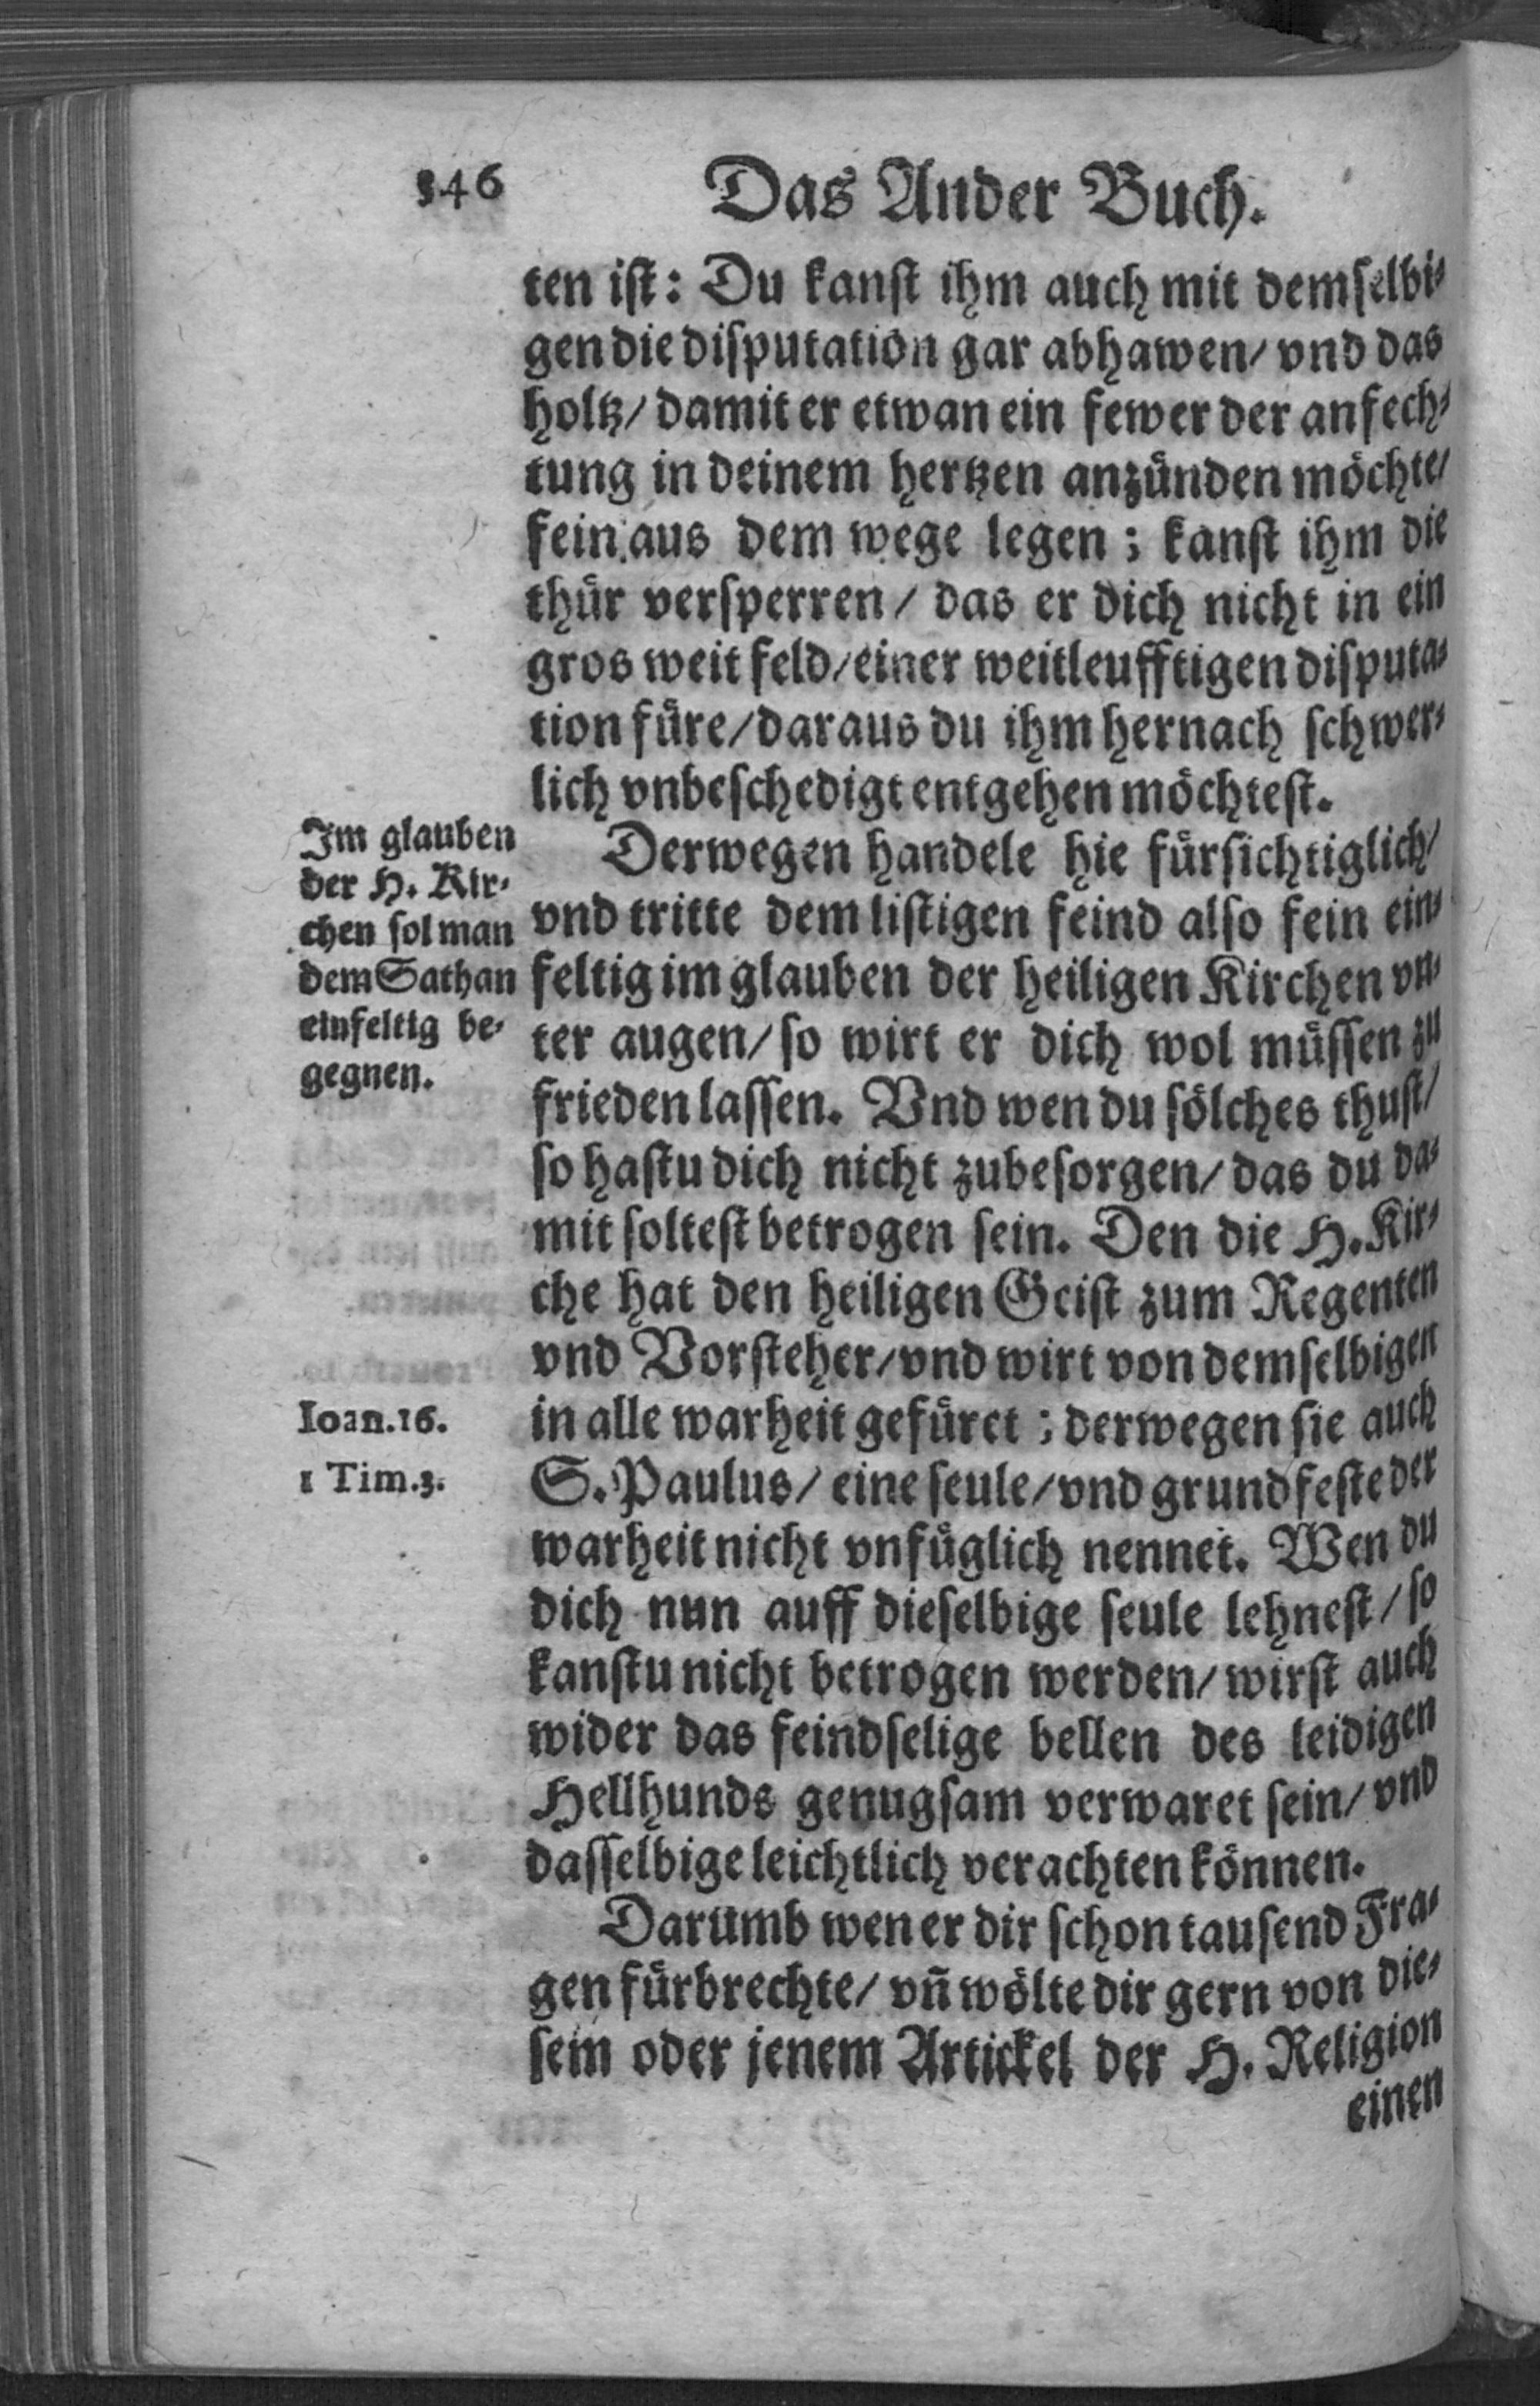 346
Das Ander Buch.
ten ist: Du kanst ihm auch mit demselbi-
gen die disputation gar abhawen/ vnd das
holtz/ damit er etwan ein fewer der anfech-
tung in deinem hertzen anzünden möchte/
fein aus dem wege legen; kanst ihm die
thür versperren/ das er dich nicht in ein
gros weit feld/ einer weitleufftigen disputa-
tion füre/ daraus du ihm hernach schwer-
lich vnbeschedigt entgehen möchtest.
Im glauben
der H. Kir-
chen sol man
dem Sathan
einfeltig be-
gegnen.
Derwegen handele hie fürsichtiglich/
vnd tritte dem listigen feind also fein ein-
feltig im glauben der heiligen Kirchen vn-
ter augen/ so wirt er dich wol müssen zu
frieden lassen. Vnd wen du sölches thust/
so hastu dich nicht zubesorgen/ das du da-
mit soltest betrogen sein. Den die H. Kir-
che hat den heiligen Geist zum Regenten
vnd Vorsteher/ vnd wirt von demselbigen
Ioan.16.
in alle warheit gefüret; derwegen sie auch
1 Tim.3.
S. Paulus/ eine seule/ vnd grundfeste der
warheit nicht vnfüglich nennet. Wen du
dich nun auff dieselbige seule lehnest/ so
kanstu nicht betrogen werden/ wirst auch
wider das feindselige bellen des leidigen
Hellhunds genugsam verwaret sein/ vnd
dasselbige leichtlich verachten können.
Darumb wen er dir schon tausend Fra-
gen fürbrechte/ vñ wölte dir gern von die-
sem oder jenem Artickel der H. Religion
einen